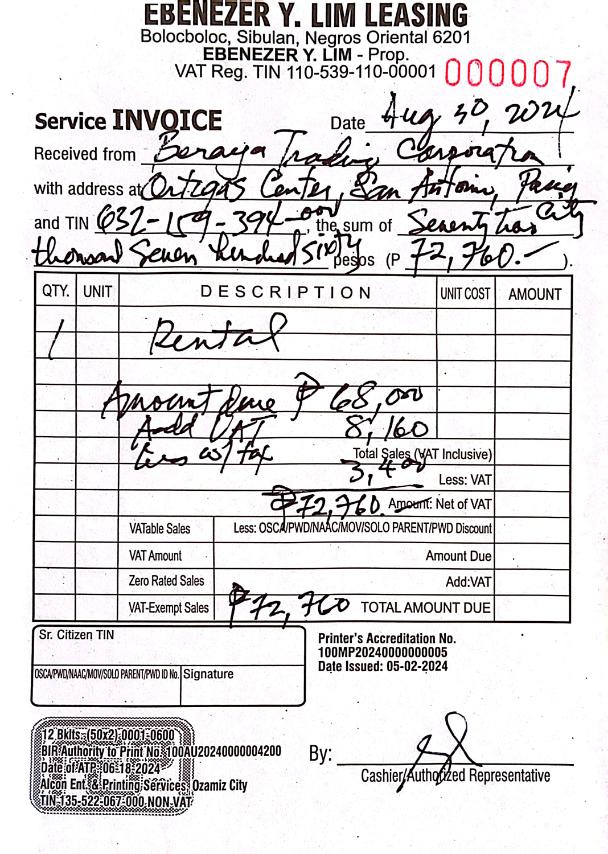 EBENEZER Y. LIM LEASING
Bolocboloc, Sibulan, Negros Oriental 6201
EBENEZER Y. LIM - Prop.
VAT Reg. TIN 110-539-110-00001 000007
Service INVOICE Date Aug 30, 2024
Received from Beraya Trading Corporation
with address at Ortigas Center, San Antonio, Pasig City
and TIN 632-159-394-000, the sum of Seventy two
thousand Seven hundred sixty pesos (P 72,760.- ).
QTY. UNIT DESCRIPTION UNIT COST AMOUNT
1 Rental
Amount due ₱ 68,000
Add VAT 8,160
Less w/tax Total Sales (VAT Inclusive)
3,400 Less: VAT
₱72,760. Amount: Net of VAT
VATable Sales Less: OSCA/PWD/NAAC/MOV/SOLO PARENT/PWD Discount
VAT Amount Amount Due
Zero Rated Sales Add:VAT
VAT-Exempt Sales ₱72,760 TOTAL AMOUNT DUE
Sr. Citizen TIN
OSCA/PWD/NAAC/MOV/SOLO PARENT/PWD ID No. Signature
Printer's Accreditation No.
100MP20240000000005
Date Issued: 05-02-2024
12 Bklts. (50x2) 0001-0600
BIR Authority to Print No. 100AU20240000004200
Date of ATP 06-18-2024
Alcon Ent. & Printing Services, Ozamiz City
TIN-135-522-067-000 NON VAT
By:
Cashier/Authorized Representative